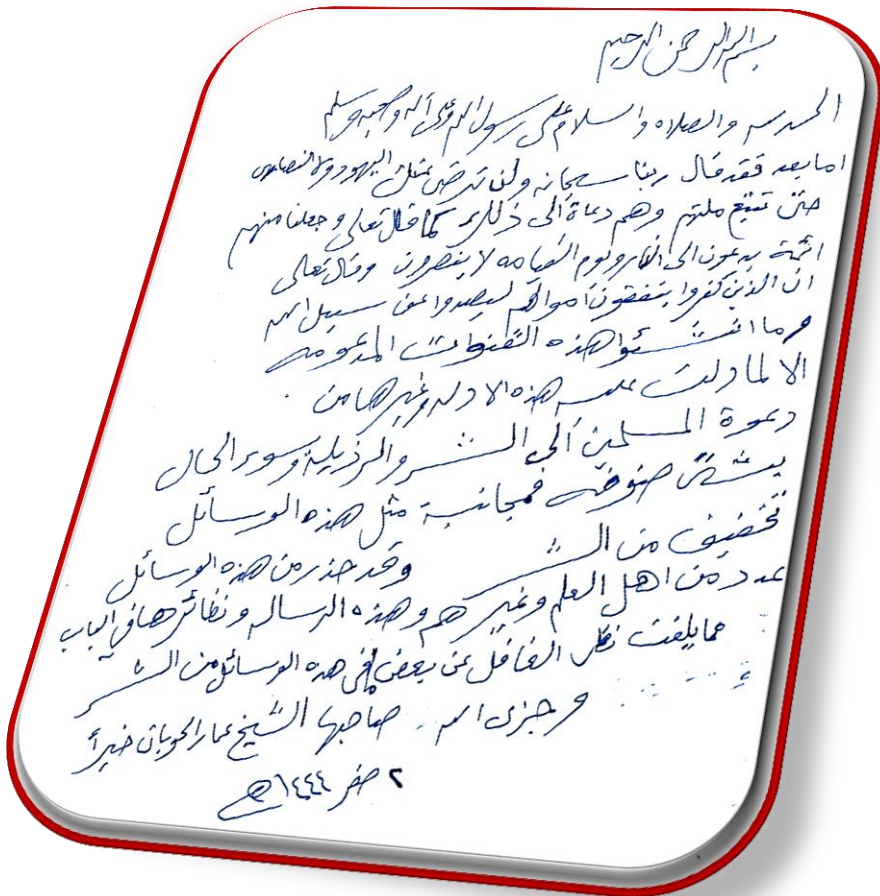 بسم الله الرحمن الرحيم
الحمد لله والصلاه والسلام على رسول الله وعلى آله وصحبه وسلم
اما بعد فقد قال ربنا سبحانه ولن ترضى عنك اليهود ولا النصارى
حتى تتبع ملتهم وهم دعاة الى ذلك كما قال تعالى وجعلنا منهم
ائمة يدعون الى النار ويوم القيامه لا ينصرون وقال تعالى
ان الذين كفروا ينفقون اموالهم ليصدوا عن سبيل الله
وما انشئوا هذه القنوات المدعومه
الا لما دلت عليه هذه الادله وغيرها من
دعوة المسلمين الى الشر والرذيلة وسوء الحال
بشتى صنوفه فمجانبة مثل هذه الوسائل
تخفيف من الشر وقد حذر من هذه الوسائل
عدد من اهل العلم وغيرهم وهذه الرساله ونظائرها في الباب
مما يلفت نظر الغافل عن بعض في هذه الوسائل من الشر
وجزى الله صاحبها الشيخ عمار الحوباني خيراً
٢ صفر ١٤٤٤هـ